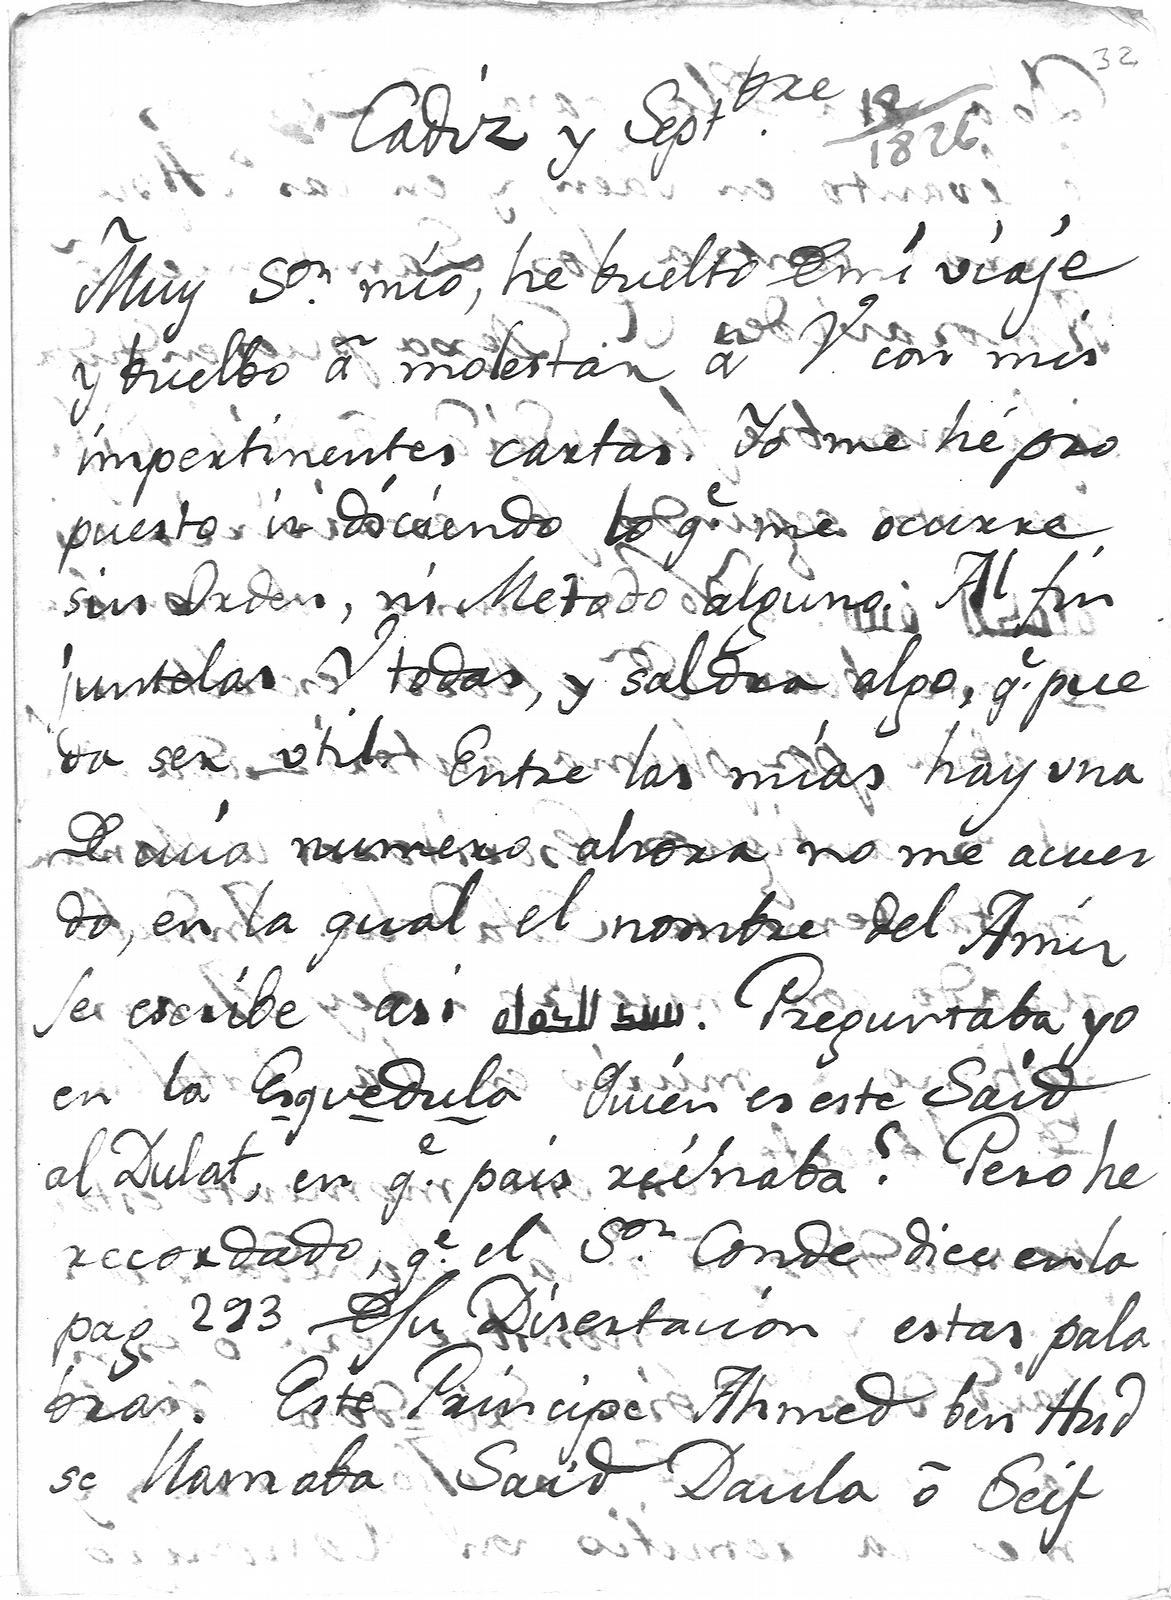 32
Cadiz y Septbre. 18/1826
Muy Sor. mio, he buelto de mi viaje
y buelbo à molestar à V. con mis
impertinentes cartas. Yo me hé pro
puesto ir diciendo lo qe. me ocurre
sin Orden, ni Metodo alguno. Al fin
juntelas V todas, y saldra algo, qe. pue
da ser vtil. Entre las mias hay una
de cuio numero ahora no me acuer
do, en la qual el nombre del Amir
se escribe asi سعد الدوله. Preguntaba yo
en la Esquedula Quien es este Said
al Dulat, en qe. pais reinaba? Pero he
recordado, qe. el Sor. Conde dice en la
pag 293 de su Disertacion estas pala
bras. Este Principe Ahmed ben Hud
se llamaba Said Daula ō Seif